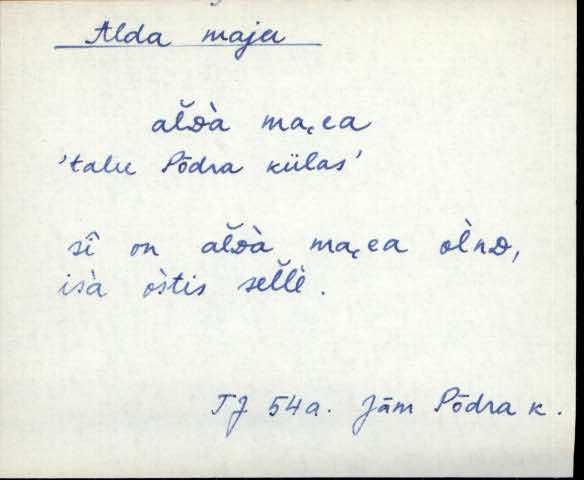 Alda maja
al̆ᴅà mai̯ea
'talu Põdra külas'
sî on al̆ᴅà mai̯ea òlnᴅ,
isà òstis sel̆lè.
TJ 54a. Jäm Põdra k.